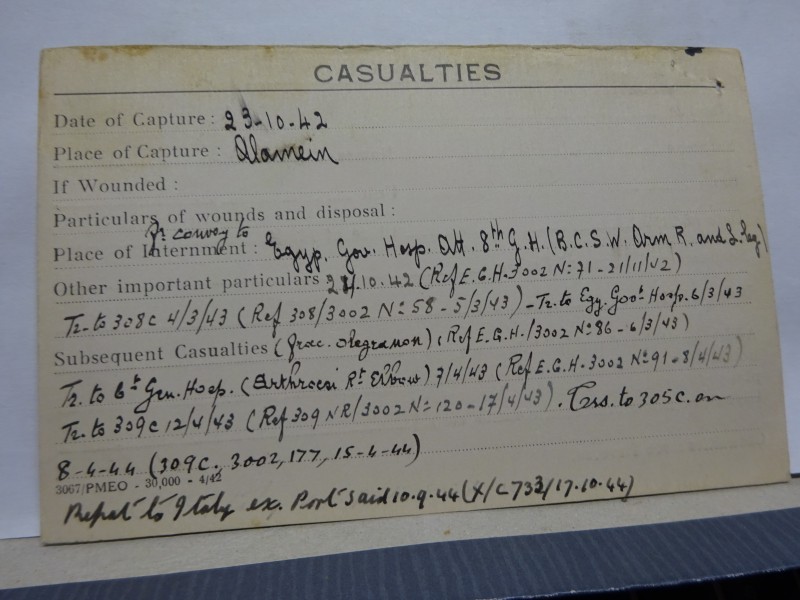 CASUALTIES
Date of Capture: 23-10-42
Place of Capture: Alamein
If Wounded:
Particulars of wounds and disposal:
Fr convey to
Place of Internment: Egyp. Gov. Hosp. Att. 8th G.H. (B.C.S.W. Arm R. and L. Leg)
Other important particulars 24.10.42 (Ref E.G.H-3002 No 71-21/11/42)
Tr. to 308c 4/3/43 (Ref 308/3002 No 58-5/3/43) - Tr. to Egy. Govt Hosp. 6/3/43
Subsequent Casualties (frac. olegranon) (Ref E.G.H./3002 No 86-6/3/43)
Tr. to 6t Gen. Hosp. (Arthrocesi Rt Elbow) 7/4/43 (Ref E.G.H-3002 No 91-8/4/43)
Tr. to 309c 12/4/43 (Ref 309 NR/3002 No 120-17/4/43). Trs. to 305c. on
8-4-44 (309c. 3002, 177, 15-4-44)
3067/PMEO - 30,000 - 4/42
Repat to Italy ex. Port Said 10.9.44 (X/C733/17.10.44)